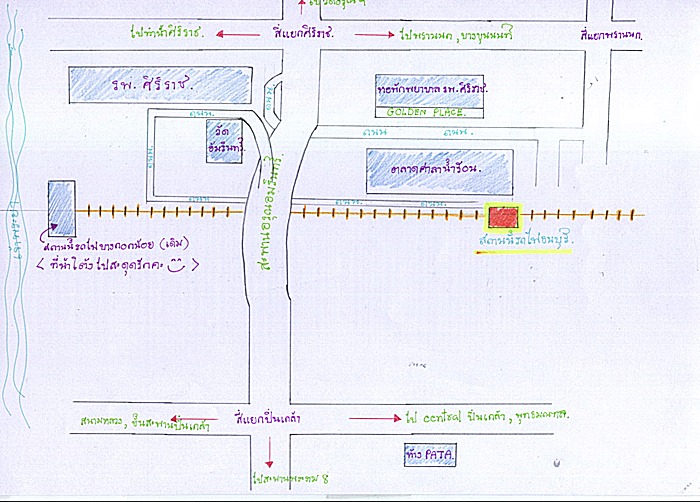 ไปท่าน้ำศิริราช.
สี่แยกศิริราช.
ไปพรานนก, บางขุนนนท์
สี่แยกพรานนก.
รพ. ศิริราช.
ถนน
หอพักพยาบาล รพ. ศิริราช.
GOLDEN PLACE.
ถนน
ถนน.
วัด
อัมรินทร์.
ถนน.
สะพานอรุณอมรินทร์.
ตลาดศาลาน้ำร้อน.
ถนน
ถนน.
ถนน.
สถานีรถไฟบางกอกน้อย (เดิม)
สถานีรถไฟธนบุรี.
สนามหลวง, ขึ้นสะพานปิ่นเกล้า
สี่แยกปิ่นเกล้า
ไป central ปิ่นเกล้า, พุทธมณฑล.
ห้าง PATA.
ไปสะพานพระราม 8